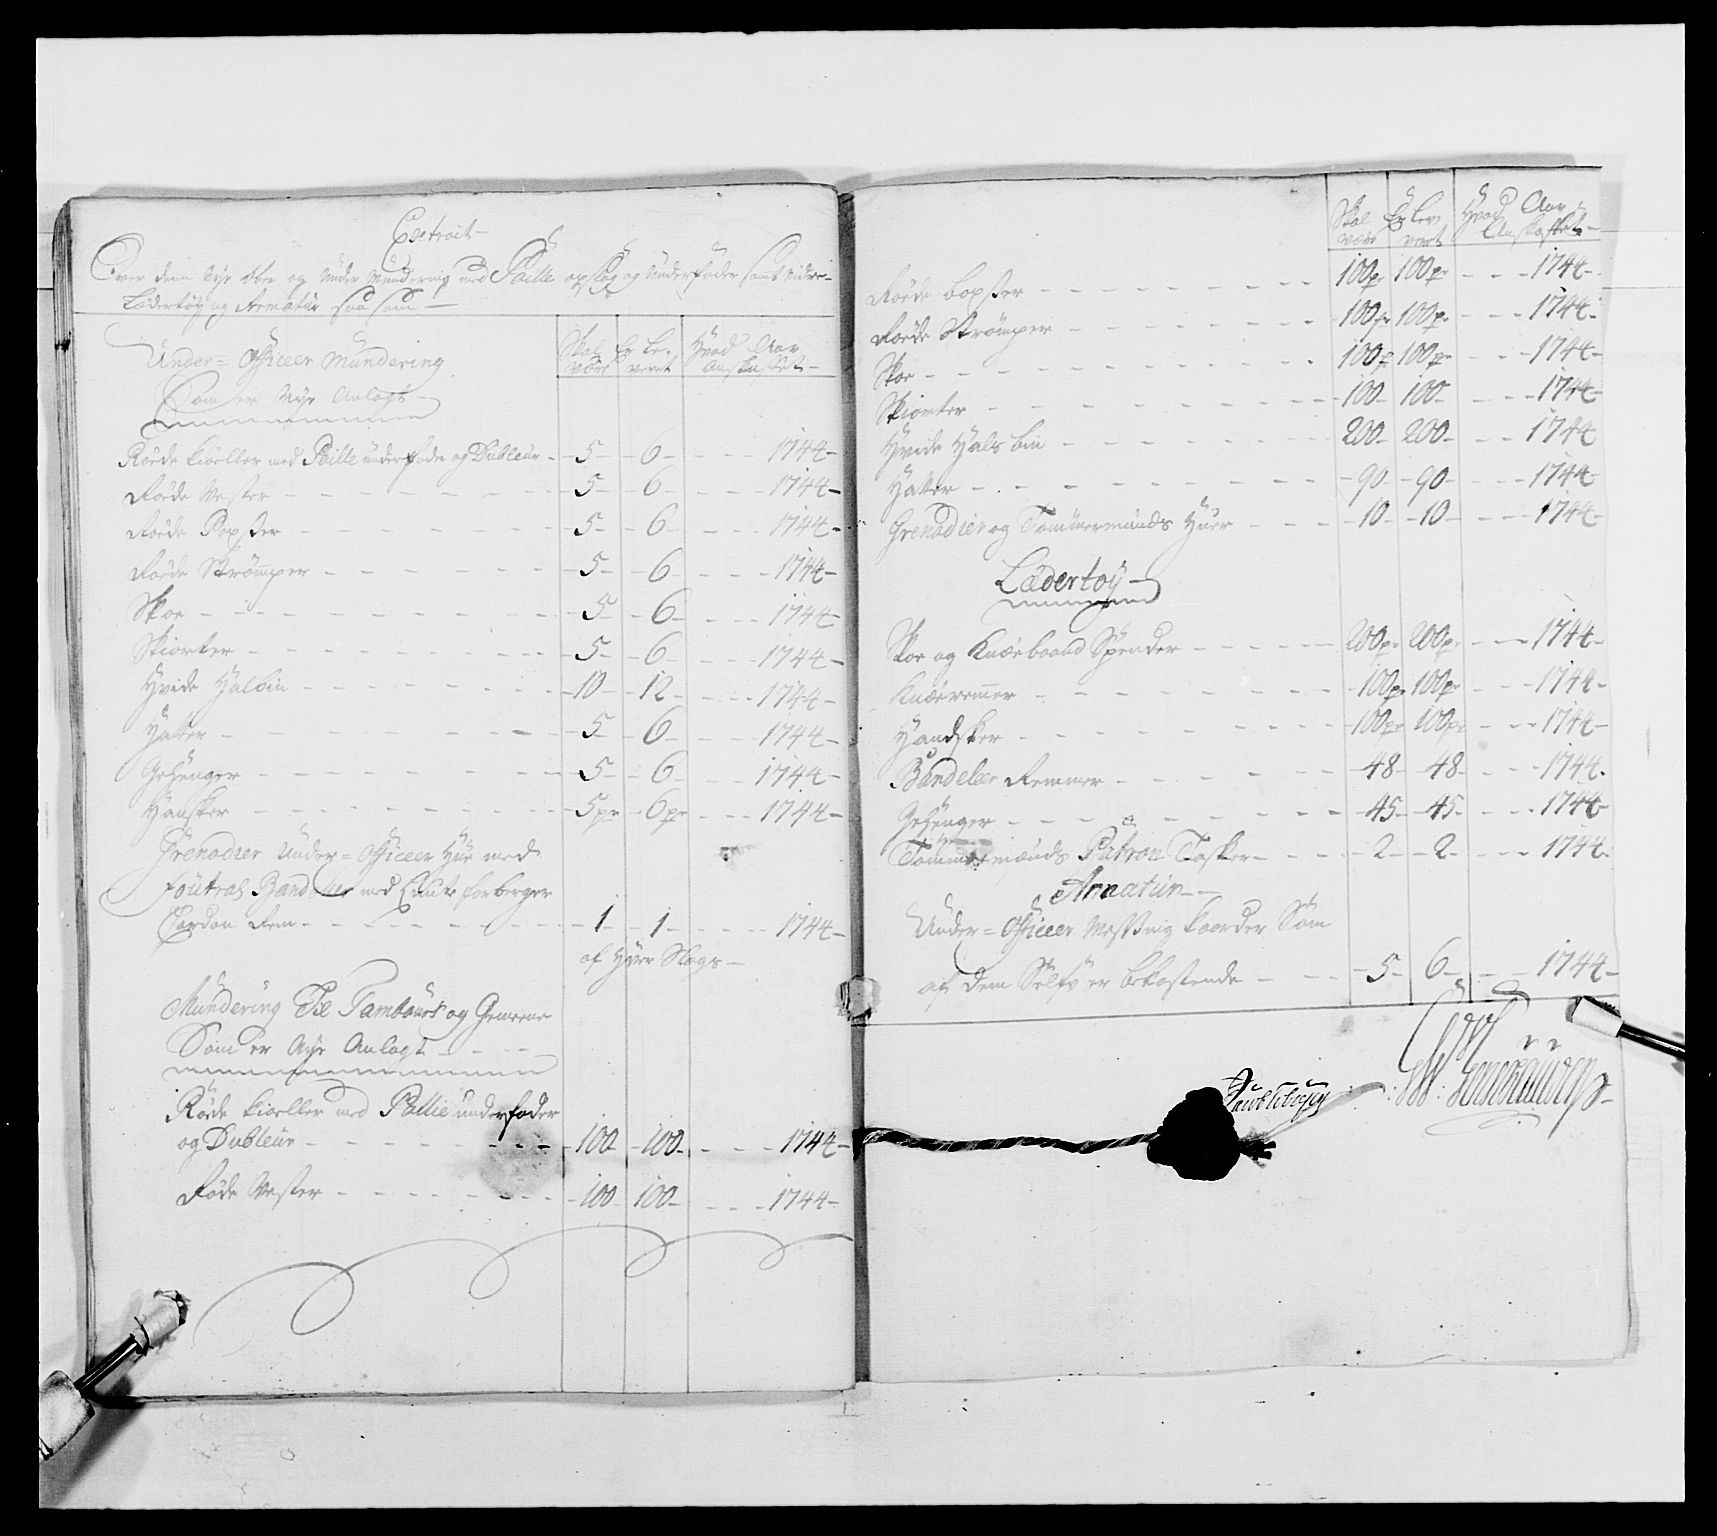 Extrait
Over denn Nye Ober og Under Mundering med Paille opslag og Underfoder samt Vider
Lædertøy og Armatur saa som
Under = Officeer Mundering
Skal være
Er Leveret
Hvad Aar Anskaffet
Som er Nye Anlagt
Røede kioeller med Paille underfoder og Dubleur - 5 - 6 - 1744
Røede Vester - 5 - 6 - 1744
Røede Boxser - 5 - 6 - 1744
Røede Strømper - 5 - 6 - 1744
Skoe - 5 - 6 - 1744
Skiorter - 5 - 6 - 1744
Hvide Halsbin - 10 - 12 - 1744
Hatter - 5 - 6 - 1744
Gehenger - 5 - 6 - 1744
Hansker - 5 pr - 6 pr - 1744
Grenadier Under = Officeer Hue med
Foutral Bandoleer med Lunte forberger
Cordon Rem - 1 - 1 - 1744
af Hver Slags
Mundering Til Tambours og Gemeene
Som er Nye Anlagt
Røde kioeller med Pallie underfoder
og Dubleur - 100 - 100 - 1744
Røde Vester - 100 - 100 - 1744
Skal være
Er Leveret
Hvad Aar Anskaffet
Røede boxser - 100 pr 100 pr - 1744
Røede Strømper - 100 pr 100 pr - 1744
Skoe - 100 p 100 pr - 1744
Skiorter - 100 - 100 - 1744
Hvide Hals bin - 200 - 200 - 1744
Hatter - 90 - 90 - 1744
Grenadier og Tømmermands Huer - 10 - 10 - 1744
Lædertøy
Skoe og Knæebaand Spender - 200 pr 200 pr - 1744
Knæeremer - 100 pr 100 pr - 1744
Handsker - 100 pr 100 pr - 1744
Bandeleer Remmer - 48 - 48 - 1744
Gehenger - 45 - 45 - 1744
Tømmermænds Patron Tasker - 2 - 2 - 1744
Armatur
Under = Officeer Messing kaarder Som
af dem Selfv er bekostende - 5 - 6 - 1744